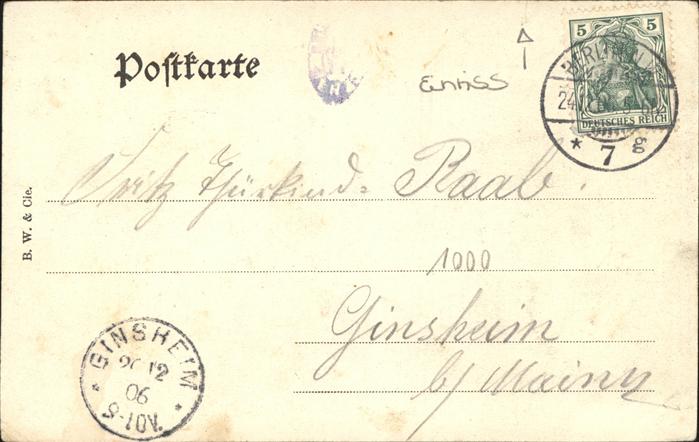 5 5
Postkarte
Einriss
DEUTSCHES REICH
BERLIN
* 7 gg
Fritz Thürkind-Raab.
B. W. & Cie.
1000
Ginsheim
b/ Mainz
GINSHEIM
26 12
06
8-10V.